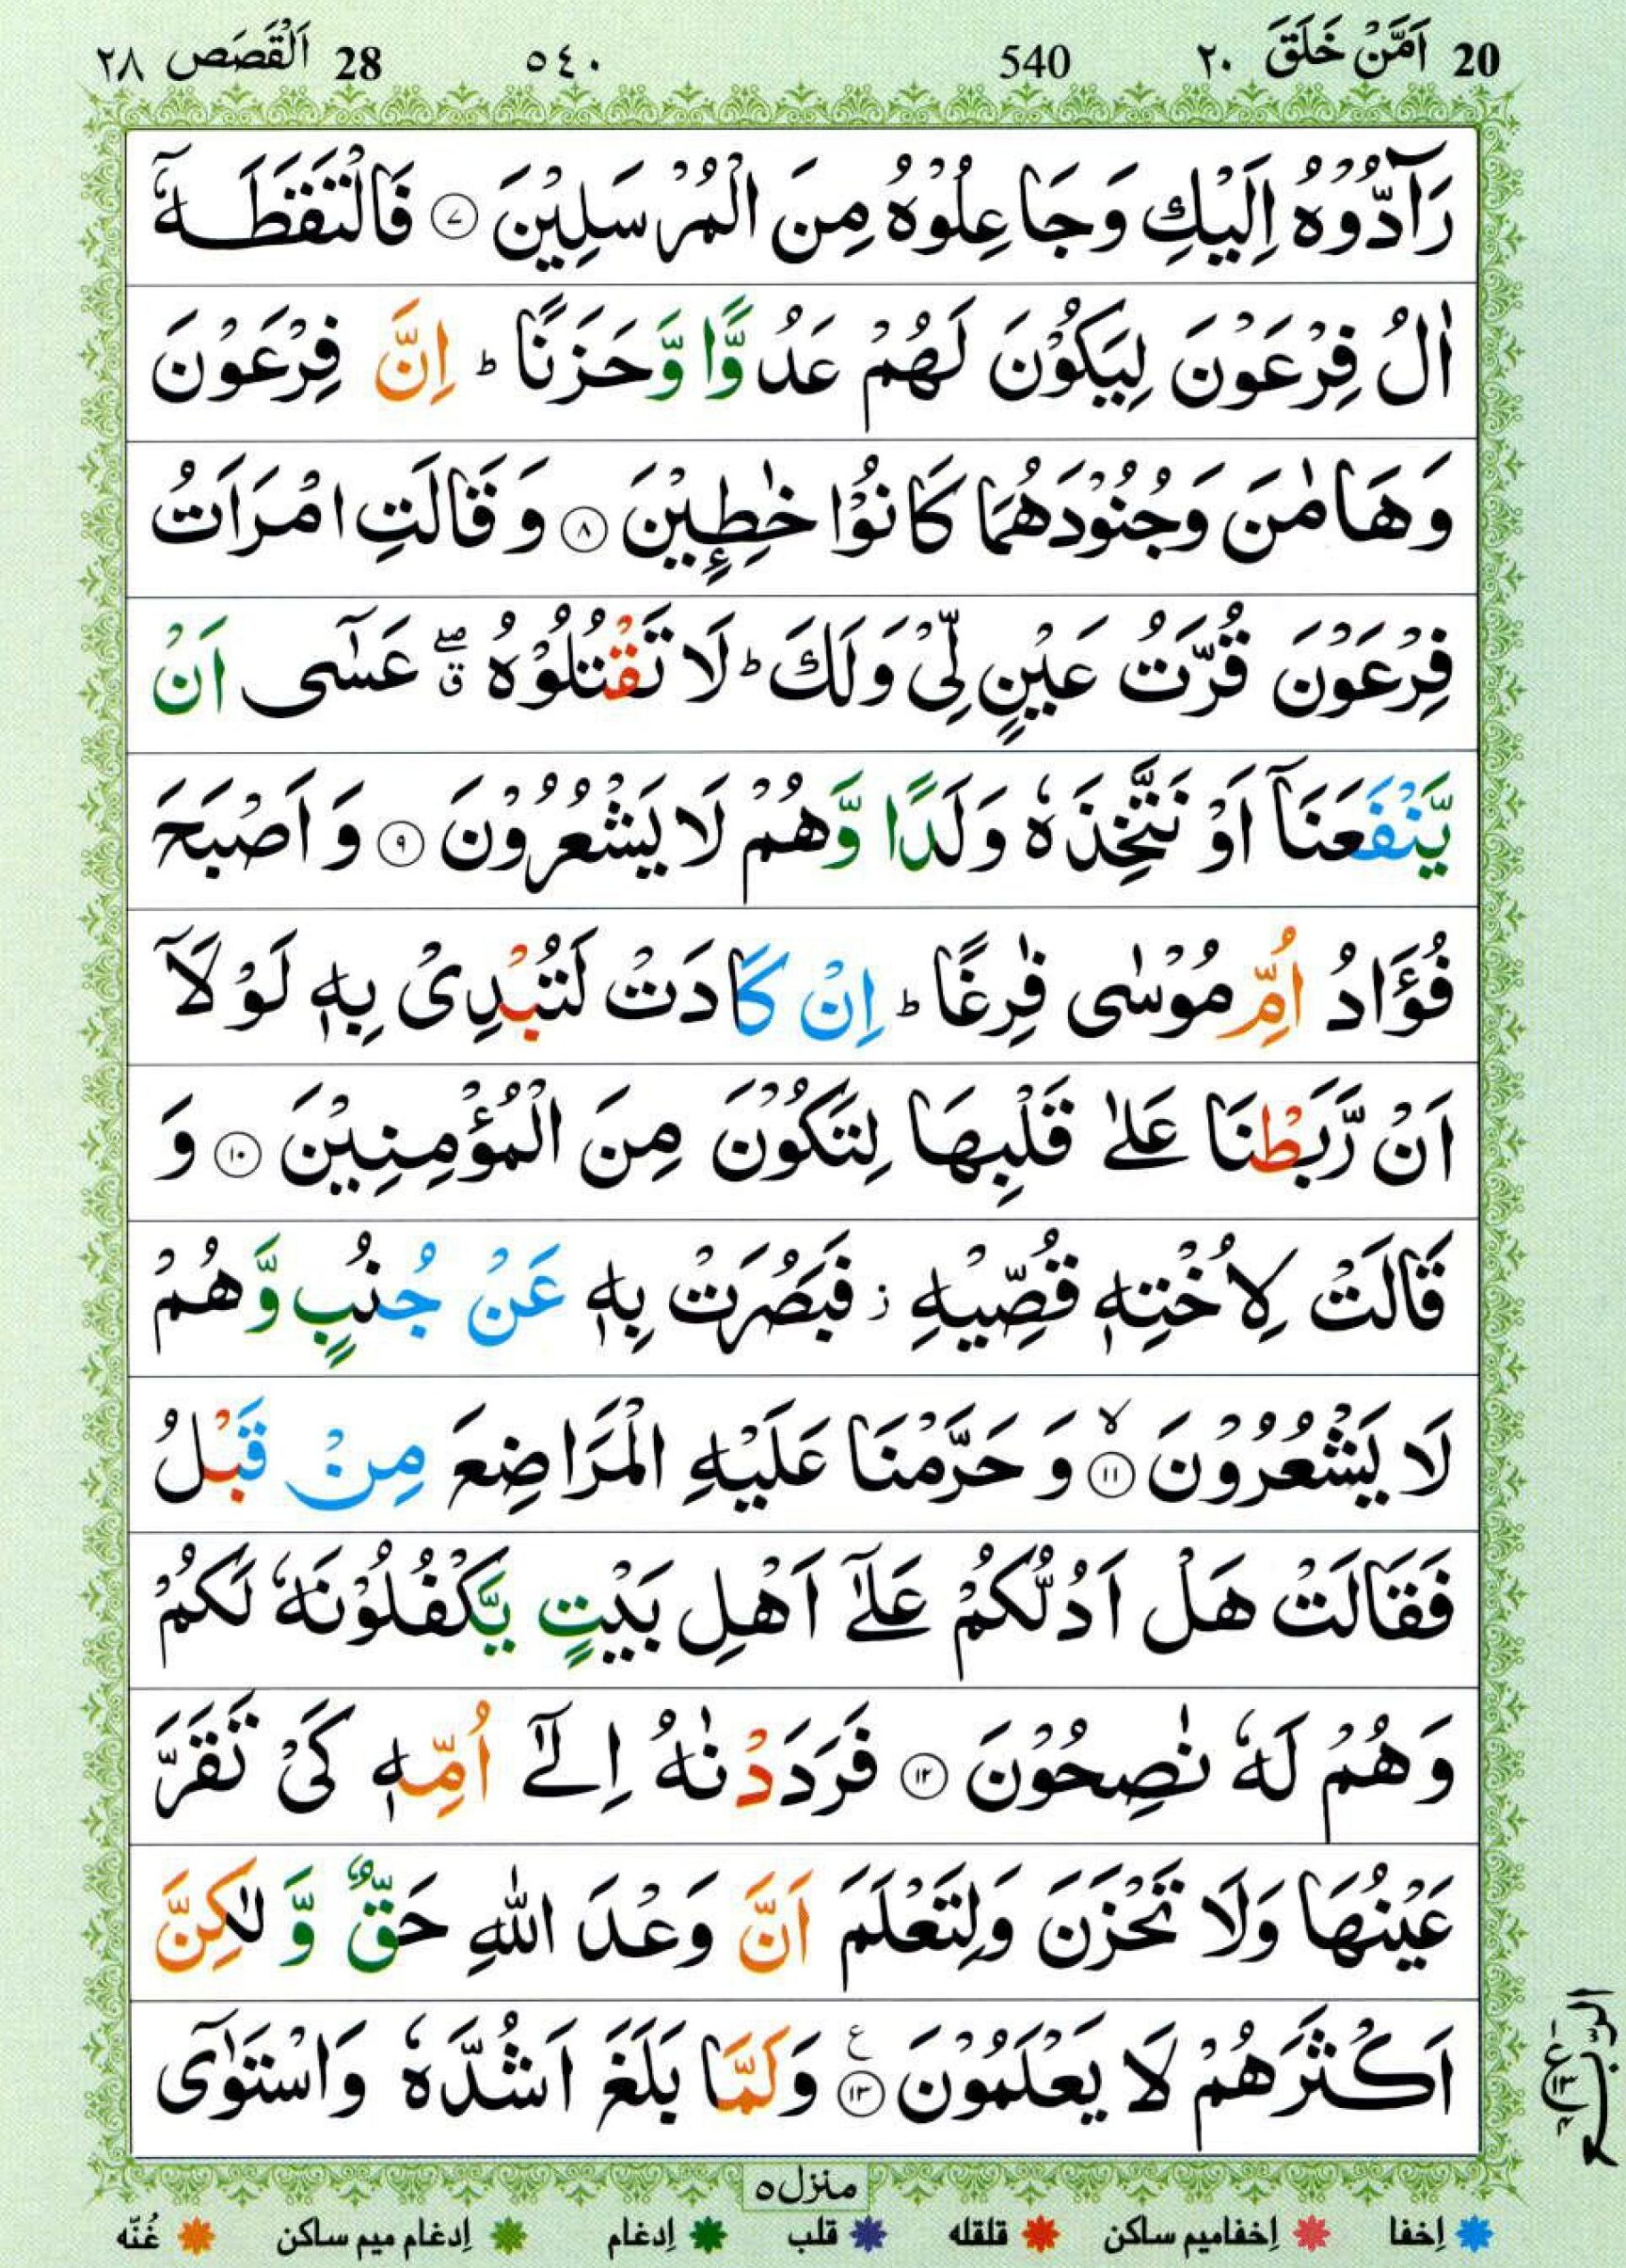 20 اَمَّنْ خَلَقَ ٢٠ 540 ٥٤٠ 28 اَلْقَصَص ٢٨
رَآدُّوْهُ اِلَيْكِ وَجَاعِلُوْهُ مِنَ الْمُرْسَلِيْنَ ۝٧ فَالْتَقَطَهٗۤ
اٰلُ فِرْعَوْنَ لِيَكُوْنَ لَهُمْ عَدُوًّا وَّحَزَنًا ؕ اِنَّ فِرْعَوْنَ
وَهَامٰنَ وَجُنُوْدَهُمَا كَانُوْا خٰطِـِٕيْنَ ۝٨ وَقَالَتِ امْرَاَتُ
فِرْعَوْنَ قُرَّتُ عَيْنٍ لِّىْ وَلَكَ ؕ لَا تَقْتُلُوْهُ ۖۗ عَسٰٓى اَنْ
يَّنْفَعَنَاۤ اَوْ نَتَّخِذَهٗ وَلَدًا وَّهُمْ لَا يَشْعُرُوْنَ ۝٩ وَاَصْبَحَ
فُؤَادُ اُمِّ مُوْسٰى فٰرِغًا ؕ اِنْ كَادَتْ لَتُبْدِىْ بِهٖ لَوْلَاۤ
اَنْ رَّبَطْنَا عَلٰى قَلْبِهَا لِتَكُوْنَ مِنَ الْمُؤْمِنِيْنَ ۝١٠ وَ
قَالَتْ لِاُخْتِهٖ قُصِّيْهِ ؗ فَبَصُرَتْ بِهٖ عَنْ جُنُبٍ وَّهُمْ
لَا يَشْعُرُوْنَ ۙ۝١١ وَحَرَّمْنَا عَلَيْهِ الْمَرَاضِعَ مِنْ قَبْلُ
فَقَالَتْ هَلْ اَدُلُّكُمْ عَلٰٓى اَهْلِ بَيْتٍ يَّكْفُلُوْنَهٗ لَكُمْ
وَهُمْ لَهٗ نٰصِحُوْنَ ۝١٢ فَرَدَدْنٰهُ اِلٰٓى اُمِّهٖ كَىْ تَقَرَّ
عَيْنُهَا وَلَا تَحْزَنَ وَلِتَعْلَمَ اَنَّ وَعْدَ اللّٰهِ حَقٌّ وَّلٰكِنَّ
اَكْثَرَهُمْ لَا يَعْلَمُوْنَ ۝١٣ع وَلَمَّا بَلَغَ اَشُدَّهٗ وَاسْتَوٰٓى
الربع
منزل ٥
اِخفا اِخفامیم ساکن قلقله قلب اِدغام اِدغام میم ساکن غُنّه